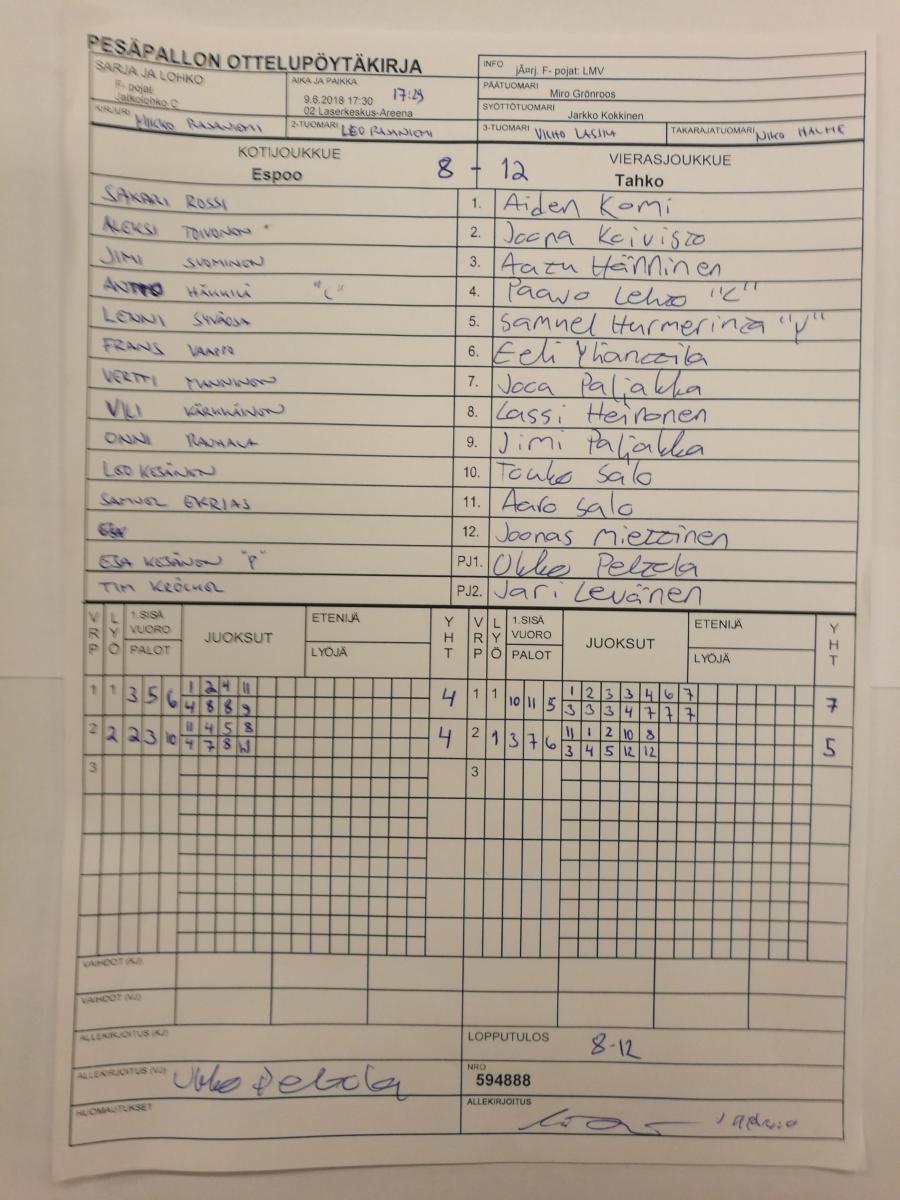 PESÄPALLON OTTELUPÖYTÄKIRJA
SARJA JA LOHKO
F- pojat
Jatkolohko C
AIKA JA PAIKKA
9.6.2018 17:30 17:29
02 Laserkeskus-Areena
INFO jÃ¤rj. F- pojat: LMV
PÄÄTUOMARI Miro Grönroos
SYÖTTÖTUOMARI Jarkko Kokkinen
KIRJURI MIKKO RAJANIEMI
2-TUOMARI LEO RAJANIEMI
3-TUOMARI VILHO LASILA
TAKARAJATUOMARI NIKO HALME
KOTIJOUKKUE
Espoo
8 - 12
VIERASJOUKKUE
Tahko
SAKARI ROSSI 1. Aiden Komi
ALEKSI TOIVONEN 2. Joona Koivisto
JIMI SUOMINEN 3. Aatu Hänninen
HÄKKILÄ "C" 4. Paavo Lehto "C"
LENNI SYVÄOJA 5. Samuel Hurmerinta "V"
FRANS 6. Eeli Ylianttila
VERTTI MANNINEN 7. Joca Paljakka
VILI KÄRKKÄINEN 8. Lassi Heinonen
ONNI RAUHALA 9. Jimi Paljakka
LEO KESÄNEN 10. Touko Salo
SAMUEL EKRIAS 11. Aaro Salo
12. Joonas Miettinen
ESA KESÄNEN "P" PJ1. Ukko Peltola
TIM KRÖCHEL PJ2. Jari Levänen
VRP LYÖ 1.SISÄ VUORO PALOT JUOKSUT ETENIJÄ LYÖJÄ YHT VRP LYÖ 1.SISÄ VUORO PALOT JUOKSUT ETENIJÄ LYÖJÄ YHT
1 1 3 5 6 1 2 4 11 4 1 1 10 11 5 1 2 3 3 4 6 7 7
4 8 8 9 3 3 3 4 7 7 7
2 2 2 3 10 11 4 5 8 4 2 1 3 7 6 11 1 2 10 8 5
4 7 8 3 4 5 12 12
3 3
VAIHDOT (KJ)
VAIHDOT (VJ)
ALLEKIRJOITUS (KJ)
LOPPUTULOS 8-12
ALLEKIRJOITUS (VJ) Ukko Peltola
NRO
594888
HUOMAUTUKSET
ALLEKIRJOITUS